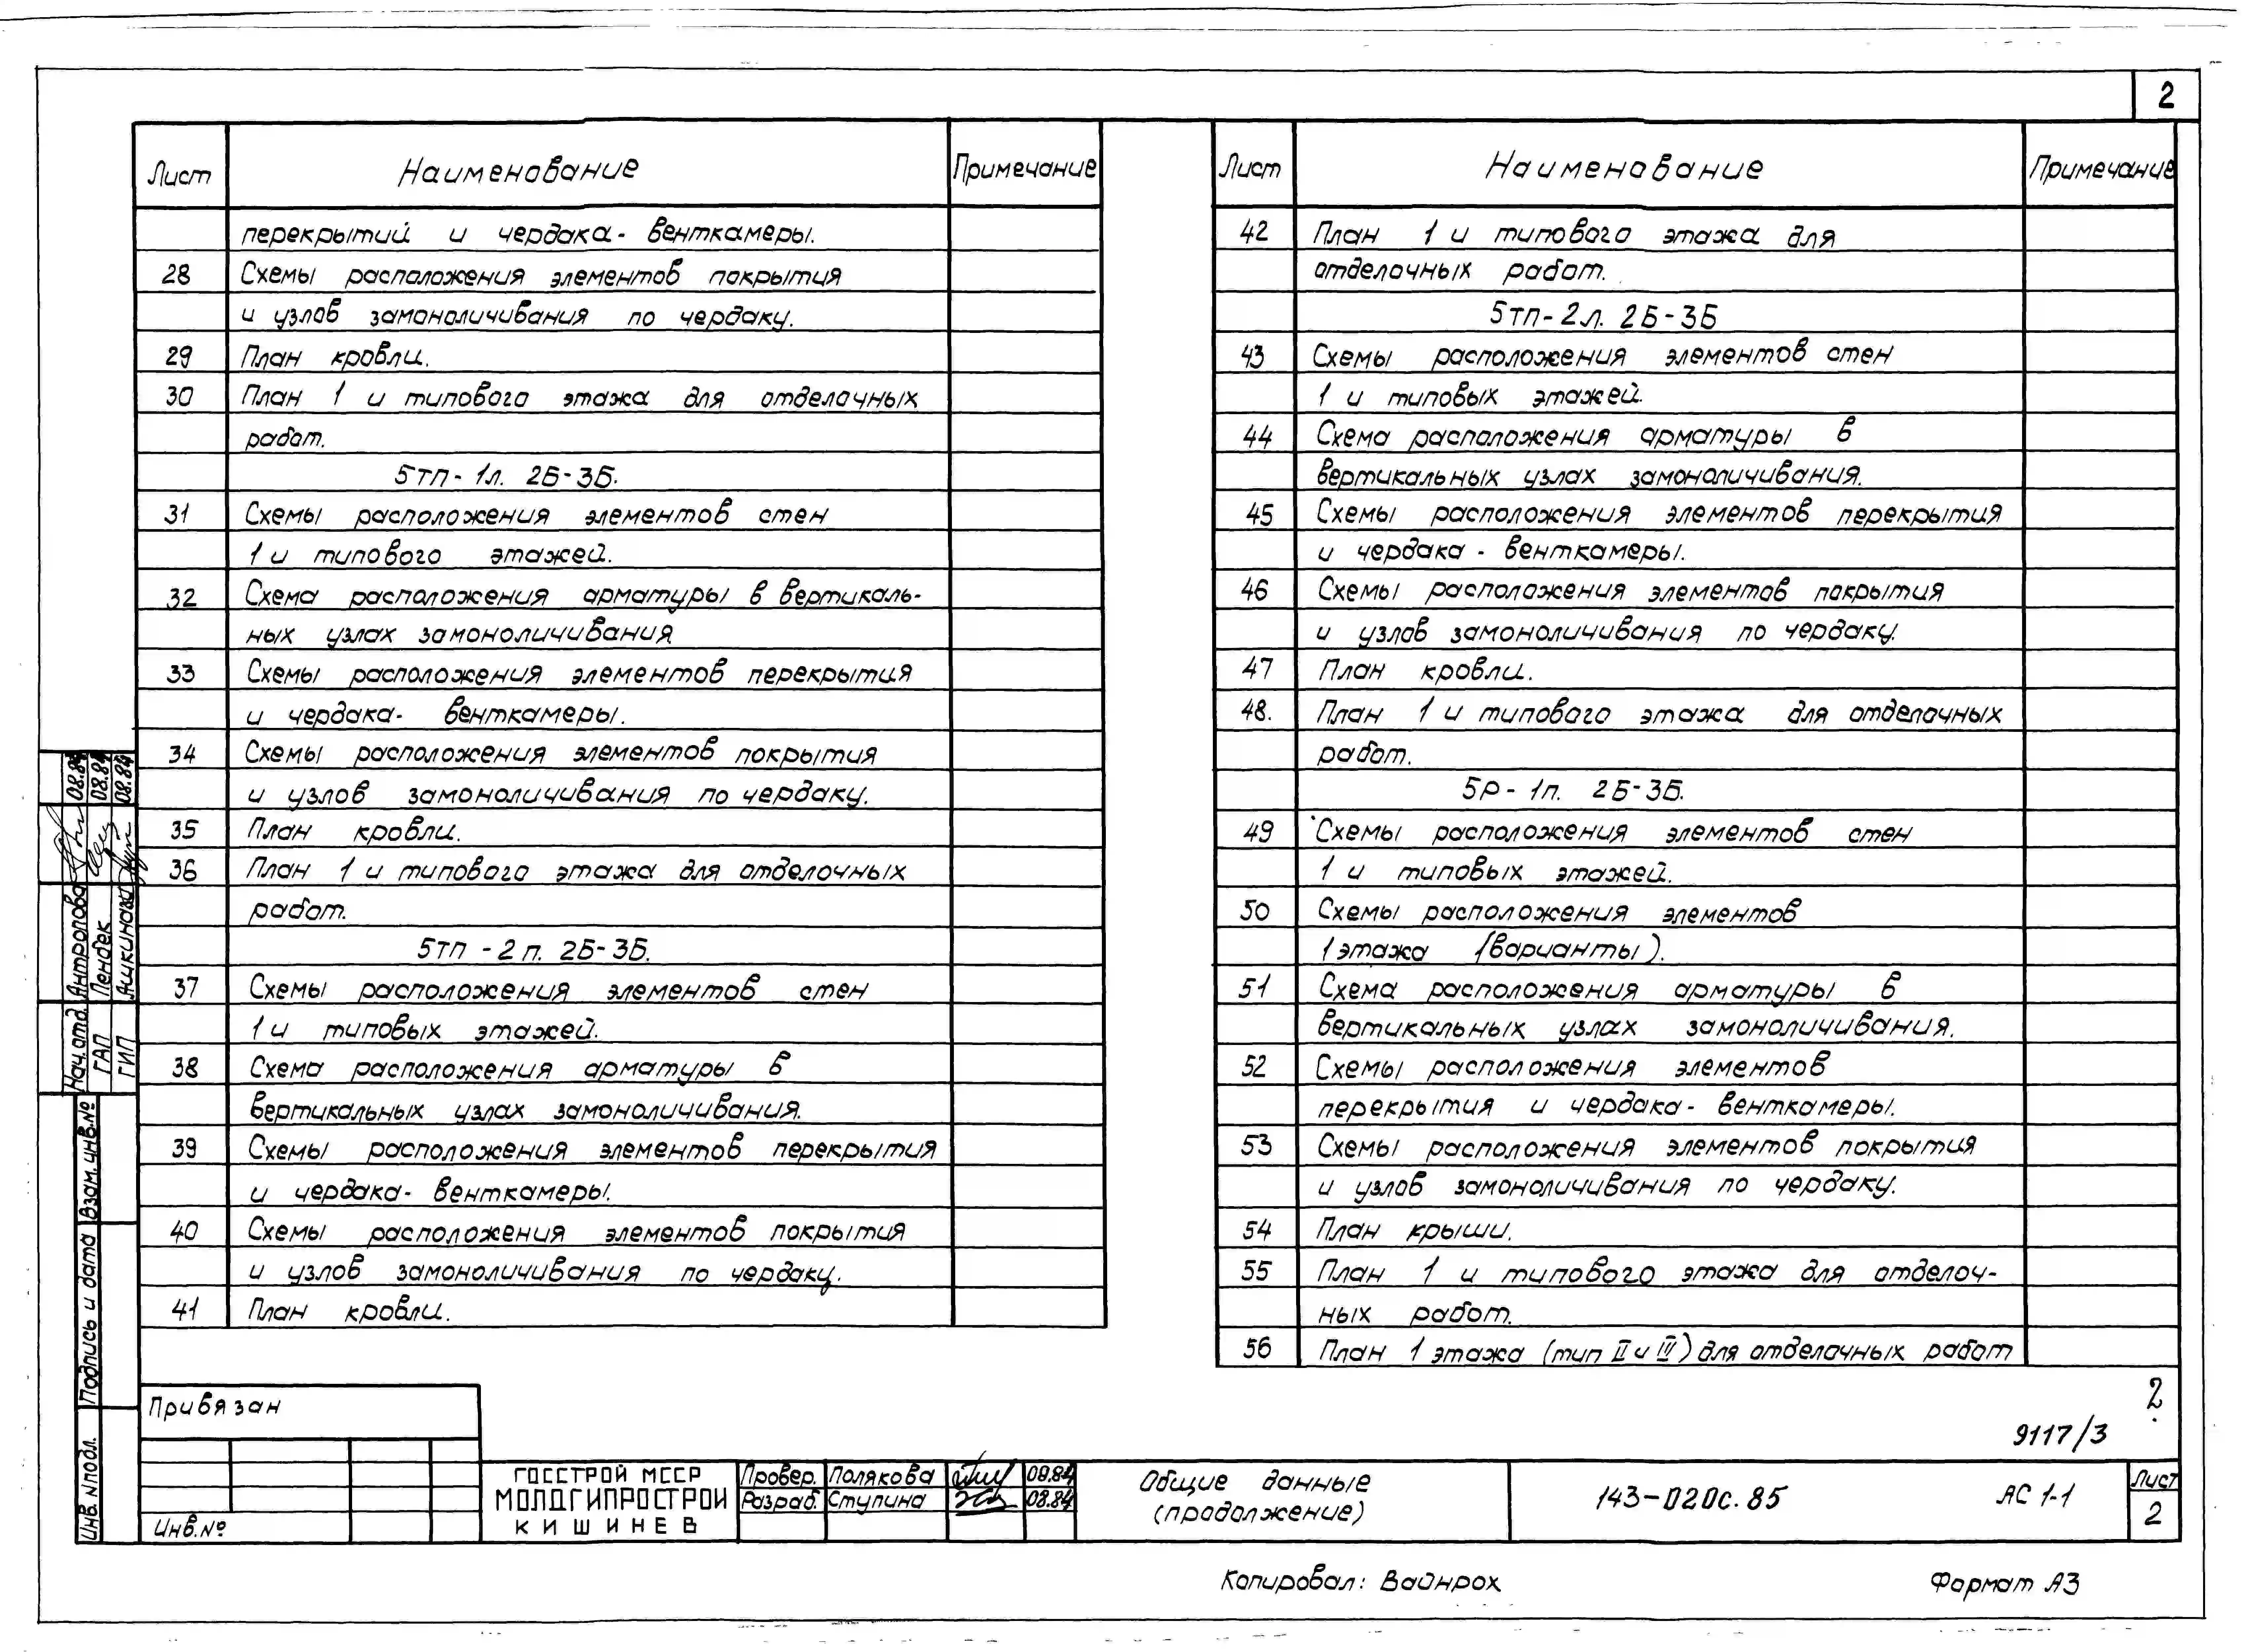 2
Лист Наименование Примечание
перекрытий и чердака- венткамеры.
28 Схемы расположения элементов покрытия
и узлов замоноличивания по чердаку.
29 План кровли.
30 План 1 и типового этажа для отделочных
работ.
5тп- 1л. 2Б-3Б.
31 Схемы расположения элементов стен
1 и типового этажей.
32 Схема расположения арматуры в вертикаль-
ных узлах замоноличивания
33 Схемы расположения элементов перекрытия
и чердака- венткамеры.
34 Схемы расположения элементов покрытия
и узлов замоноличивания по чердаку.
35 План кровли.
36 План 1 и типового этажа для отделочных
работ.
5тп - 2 п. 2Б-3Б.
37 Схемы расположения элементов стен
1 и типовых этажей.
38 Схема расположения арматуры в
вертикальных узлах замоноличивания.
39 Схемы расположения элементов перекрытия
и чердака- венткамеры.
40 Схемы расположения элементов покрытия
и узлов замоноличивания по чердаку.
41 План кровли.
Лист Наименование Примечание
42 План 1 и типового этажа для
отделочных работ.
5тп- 2л. 2Б-3Б
43 Схемы расположения элементов стен
1 и типовых этажей.
44 Схема расположения арматуры в
вертикальных узлах замоноличивания.
45 Схемы расположения элементов перекрытия
и чердака - венткамеры.
46 Схемы расположения элементов покрытия
и узлов замоноличивания по чердаку.
47 План кровли.
48. План 1 и типового этажа для отделочных
работ.
5Р- 1п. 2Б-3Б.
49 Схемы расположения элементов стен
1 и типовых этажей.
50 Схемы расположения элементов
1 этажа (варианты).
51 Схема расположения арматуры в
вертикальных узлах замоноличивания.
52 Схемы расположения элементов
перекрытия и чердака- венткамеры.
53 Схемы расположения элементов покрытия
и узлов замоноличивания по чердаку.
54 План крыши.
55 План 1 и типового этажа для отделоч-
ных работ.
56 План 1 этажа (тип II и IV) для отделочных работ
Нач.отд. Антропова 08.84
ГАП Пенбек 08.84
ГИП Ашкинази 08.84
Взам. инв.№
Подпись и дата
Инв. №подл.
Привязан
Инв.№
ГОССТРОЙ МССР
МОЛДГИПРОСТРОЙ
КИШИНЕВ
Провер. Полякова 08.84
Разраб. Ступина 08.84
Общие данные
(продолжение)
2
9117/3
143-020с.85 АС 1-1
Лист
2
Копировал: Вайнрох
Формат А3